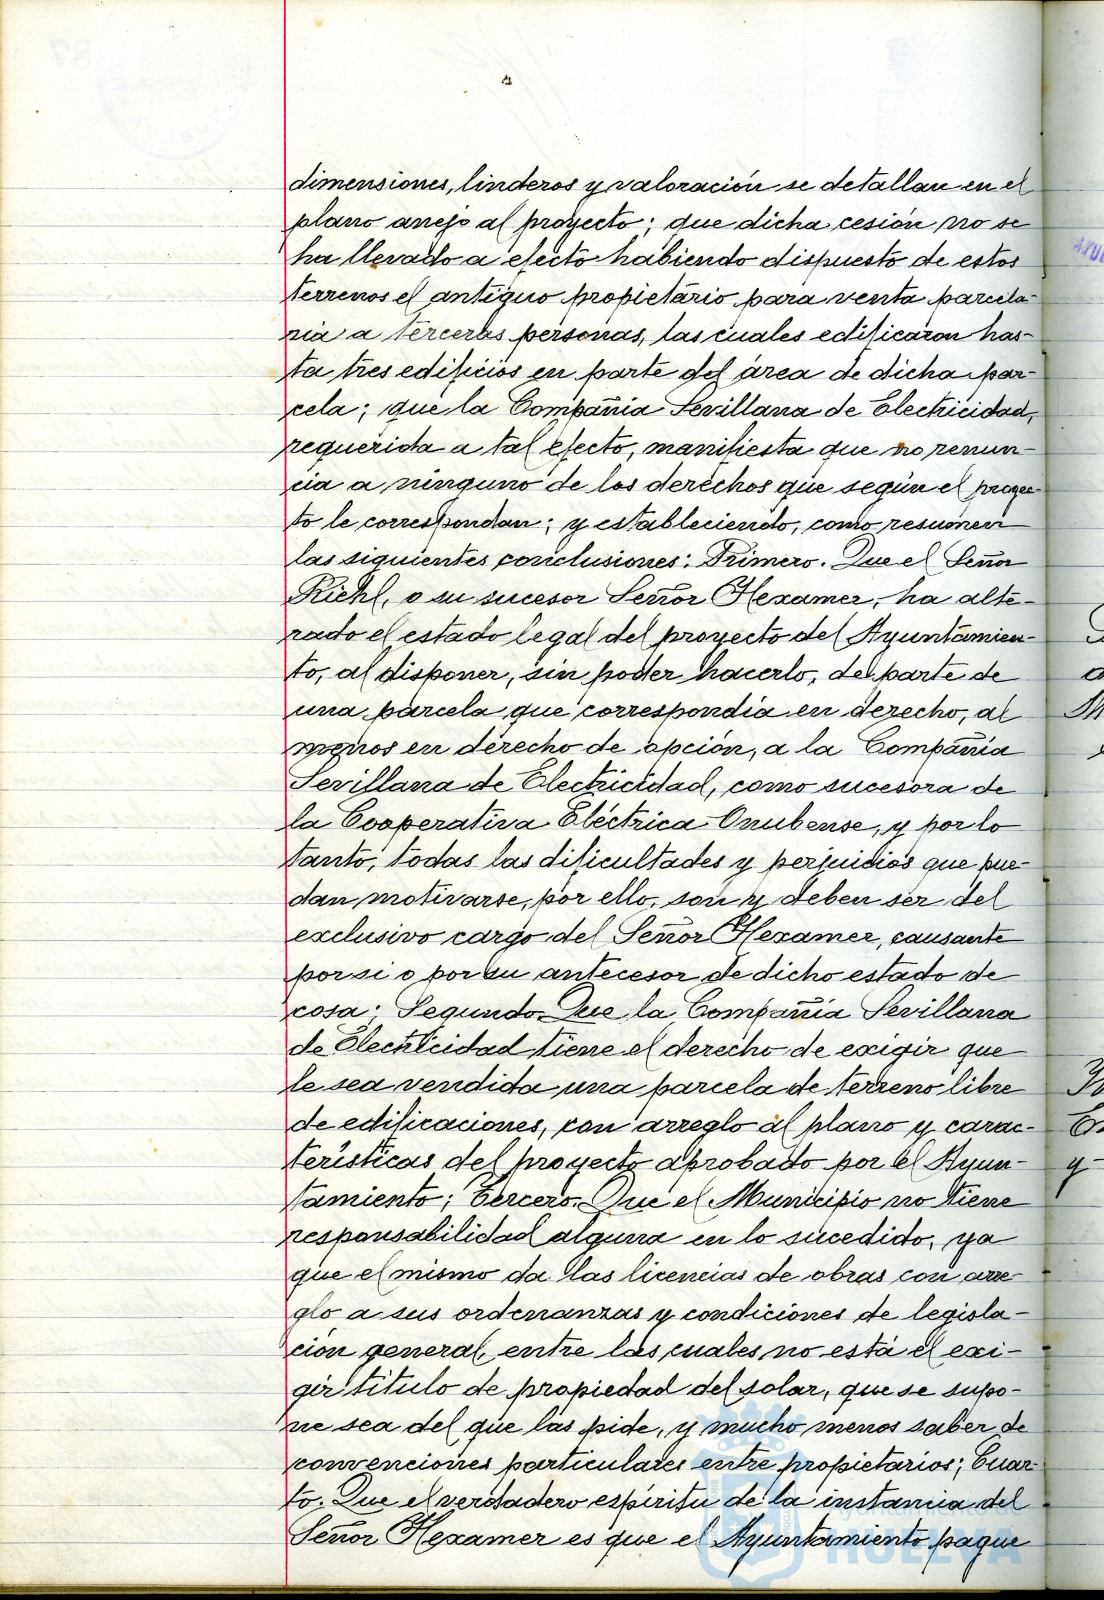 dimensiones, linderos y valoración se detallan en el
plano anejo al proyecto; que dicha cesión no se
ha llevado a efecto habiendo dispuesto de estos
terrenos el antiguo propietario para venta parcela-
ria a terceras personas, las cuales edificaron has-
ta tres edificios en parte del área de dicha par-
cela; que la Compañia Sevillana de Electricidad,
requerida a tal efecto, manifiesta que no renun-
cia a ninguno de los derechos que según el proyec-
to le correspondan; y estableciendo, como resumen
las siguientes conclusiones: Primero. Que el Señor
Riehl, o su sucesor Señor Hexamer, ha alte-
rado el estado legal del proyecto del Ayuntamien-
to, al disponer, sin poder hacerlo, de parte de
una parcela que correspondia en derecho, al
menos en derecho de opción, a la Compañia
Sevillana de Electricidad, como sucesora de
la Cooperativa Eléctrica Onubense, y por lo
tanto, todas las dificultades y perjuicios que pue-
dan motivarse, por ello, son y deben ser del
exclusivo cargo del Señor Hexamer, causante
por si o por su antecesor de dicho estado de
cosa; Segundo. Que la Compañia Sevillana
de Electricidad tiene el derecho de exigir que
le sea vendida una parcela de terreno libre
de edificaciones, con arreglo al plano y carac-
terísticas del proyecto aprobado por el Ayun-
tamiento; Tercero. Que el Municipio no tiene
responsabilidad alguna en lo sucedido, ya
que el mismo da las licencias de obras con arre-
glo a sus ordenanzas y condiciones de legisla-
ción general, entre las cuales no está el exi-
gir titulo de propiedad del solar, que se supo-
ne sea del que las pide, y mucho menos saber de
convenciones particulares entre propietarios; Cuar-
to. Que el verdadero espíritu de la instancia del
Señor Hexamer es que el Ayuntamiento pague
Ayuntamiento de
HUELVA